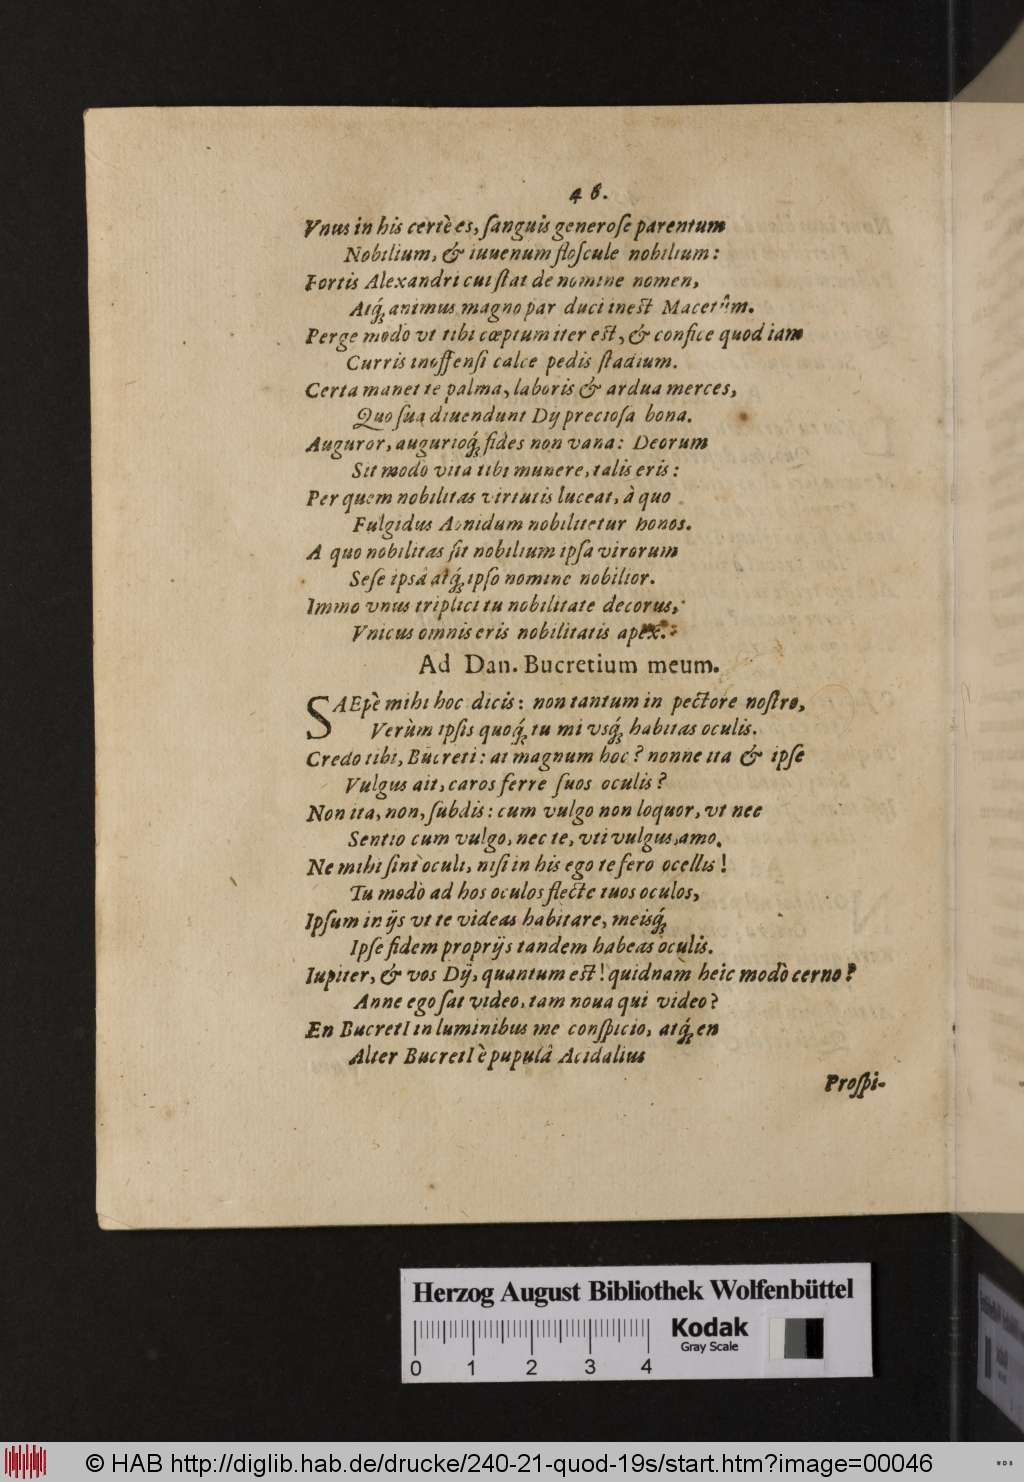 46.
Vnus in his certè es, ſanguis generoſe parentum
Nobilium, & iuuenum floſcule nobilium:
Fortis Alexandri cui ſtat de nomine nomen,
Atq́; animus magno par duci ineſt Macetûm.
Perge modò vt tibi cœptum iter eſt, & confice quod iam
Curris inoffenſi calce pedis ſtadium.
Certa manet te palma, laboris & ardua merces,
Quo ſua diuendunt Dij precioſa bona.
Auguror, augurioq́; fides non vana: Deorum
Sit modò vita tibi munere, talis eris:
Per quem nobilitas virtutis luceat, à quo
Fulgidus Aonidum nobilitetur honos.
A quo nobilitas ſit nobilium ipſa virorum
Seſe ipsâ atq́; ipſo nomine nobilior.
Immo vnus triplici tu nobilitate decorus,
Vnicus omnis eris nobilitatis apex.
Ad Dan. Bucretium meum.
SAEpè mihi hoc dicis: non tantum in pectore noſtro,
Verùm ipſis quoq́; tu mi vſq́; habitas oculis.
Credo tibi, Bucreti: at magnum hoc? nonne ita & ipſe
Vulgus ait, caros ferre ſuos oculis?
Non ita, non, ſubdis: cum vulgo non loquor, vt nec
Sentio cum vulgo, nec te, vti vulgus, amo.
Ne mihi ſint oculi, niſi in his ego te fero ocellis!
Tu modò ad hos oculos flecte tuos oculos,
Ipſum in ijs vt te videas habitare, meisq́;
Ipſe fidem proprijs tandem habeas oculis.
Iupiter, & vos Dij, quantum eſt! quidnam heic modò cerno?
Anne ego ſat video, tam noua qui video?
En BucretI in luminibus me conſpicio, atq́; en
Alter BucretI è pupulâ Acidalius
Proſpi-
Herzog August Bibliothek Wolfenbüttel
Kodak
Gray Scale
0 1 2 3 4
© HAB http://diglib.hab.de/drucke/240-21-quod-19s/start.htm?image=00046